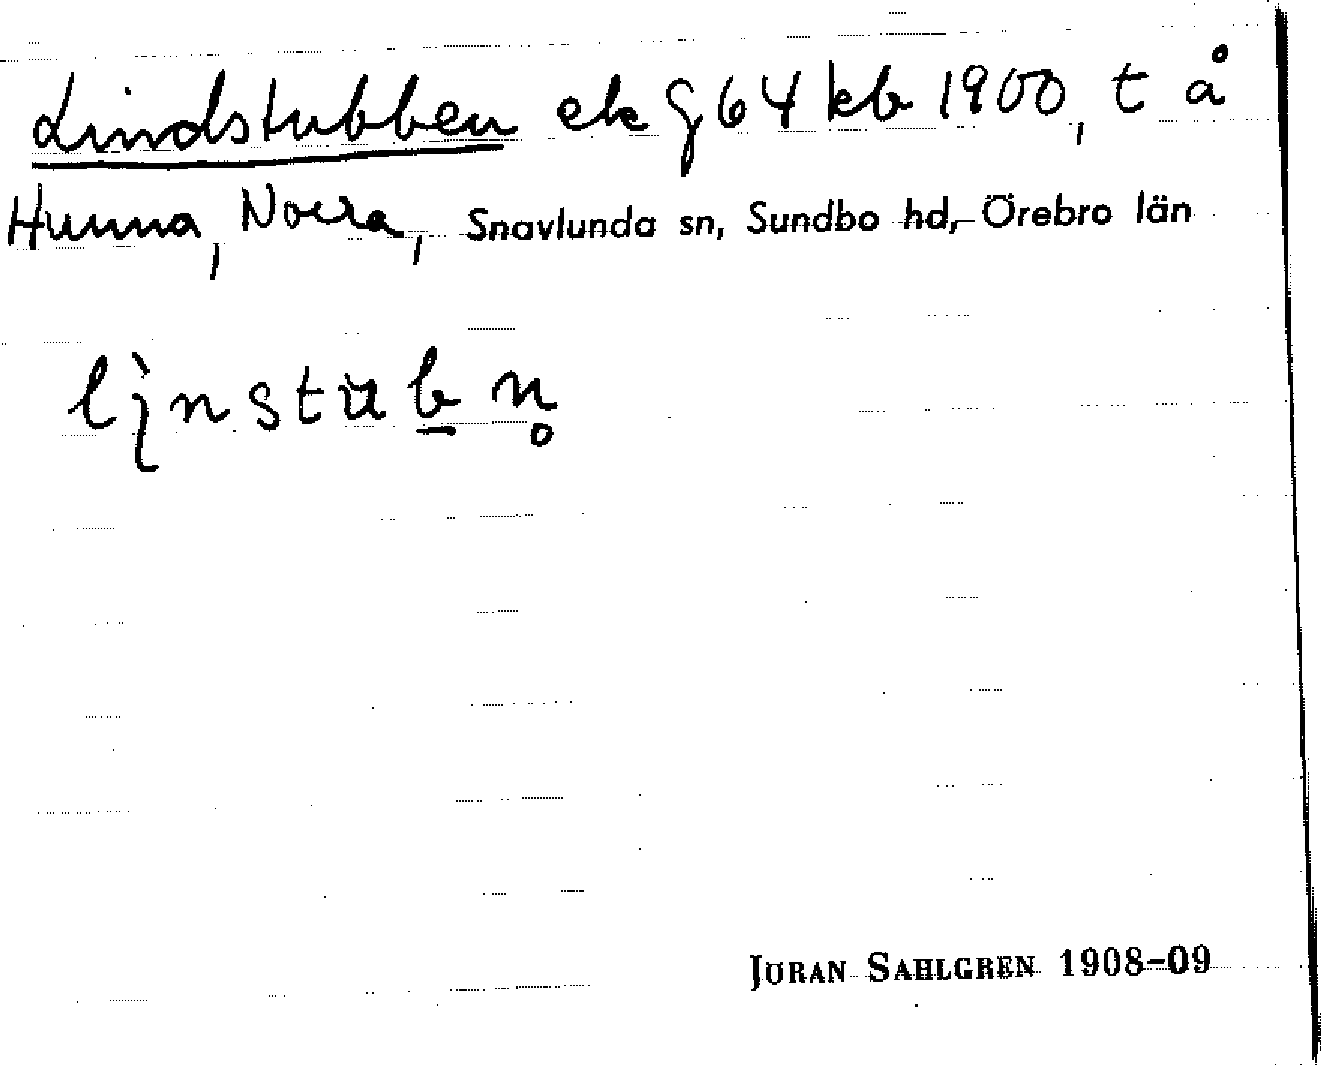 Lindstubben ek g 64 kb 1900, t å
Hunna, Norra, Snavlunda sn, Sundbo hd, Örebro län
JÖRAN SAHLGREN 1908-09